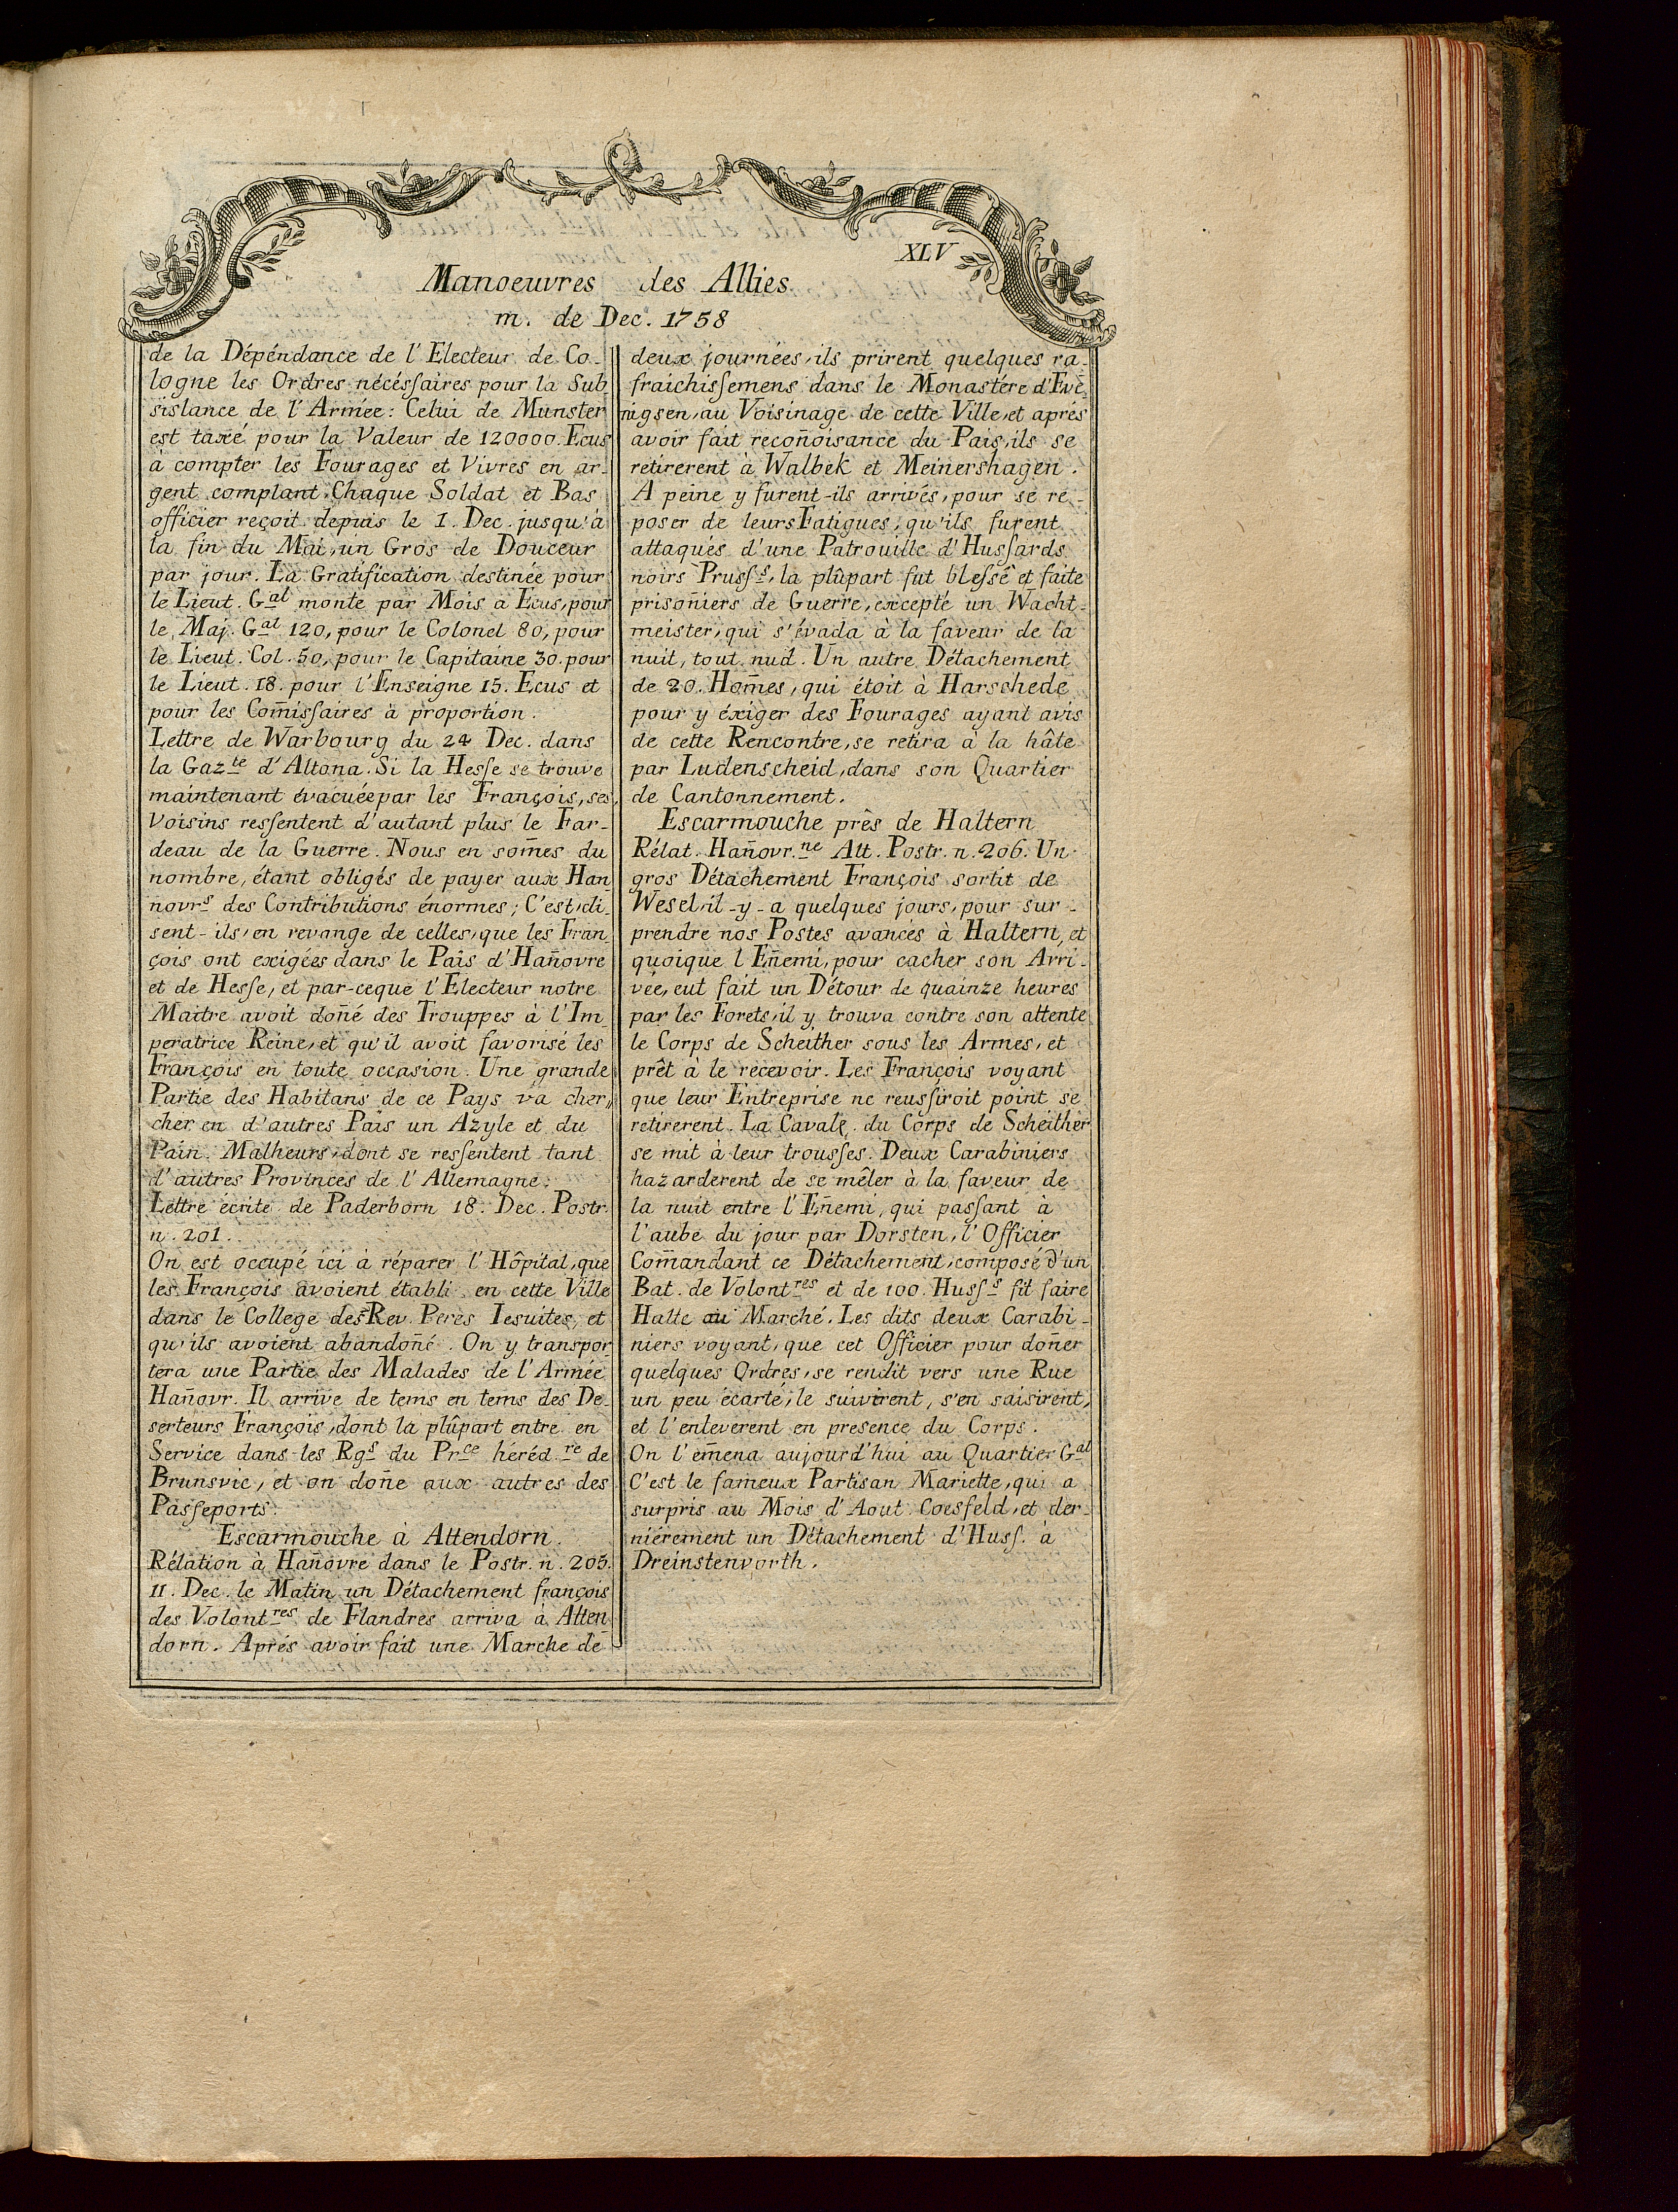 XLV
Manoeuvres des Allies
m. de Dec. 1758
de la Dépéndance de l'Electeur de Co-
logne les Ordres nécéssaires pour la Sub
sistance de l'Armée: Celui de Munster
est taxé pour la Valeur de 120000. Ecus
à compter les Fourages et Vivres en ar-
gent complant. Chaque Soldat et Bas
officier reçoit depuis le 1. Dec. jusqu'à
la fin du Mai, un Gros de Douceur
par jour. La Gratification destinée pour
le Lieut. Gal monte par Mois a Ecus, pour
le Maj. Gal 120, pour le Colonel 80, pour
le Lieut. Col. 50, pour le Capitaine 30. pour
le Lieut. 18. pour l'Enseigne 15. Ecus et
pour les Com̄issaires à proportion.
Lettre de Warbourg du 24 Dec. dans
la Gazte d'Altona. Si la Hesse se trouve
maintenant évacuée par les François, ses
Voisins ressentent d'autant plus le Far-
deau de la Guerre. Nous en som̄es du
nombre, étant obligés de payer aux Han
novrs des Contributions énormes; C'est, di-
sent-ils, en revange de celles, que les Fran
çois ont exigées dans le Païs d'Han̄ovre
et de Hesse, et par-ceque l'Electeur notre
Maitre avoit don̄é des Trouppes à l'Im
peratrice Reine, et qu'il avoit favorisé les
François en toute occasion. Une grande
Partie des Habitans de ce Pays va cher„
cher en d'autres Païs un Azyle et du
Pain. Malheurs, dont se ressentent tant
d'autres Provinces de l'Allemagne.
Lettre écrite de Paderborn 18. Dec. Postr.
n. 201.
On est occupé ici à réparer l'Hôpital, que
les François avoient établi en cette Ville
dans le College des Rev. Peres Iesuites, et
qu'ils avoient abandon̄é. On y transpor
tera une Partie des Malades de l'Armée
Han̄ovr. Il arrive de tems en tems des De-
serteurs François, dont la plûpart entre en
Service dans les Rgs du Prce héréd.re de
Brunsvic, et on don̄e aux autres des
Passeports.
Escarmouche à Attendorn.
Rélation à Han̄ovre dans le Postr. n. 205.
11. Dec. le Matin un Détachement françois
des Volontres de Flandres arriva à Atten
dorn. Aprés avoir fait une Marche de
deux journées, ils prirent quelques ra-
fraichissemens dans le Monastére d'Eve-
nigsen, au Voisinage de cette Ville, et aprés
avoir fait recon̄oisance du Païs, ils se
retirerent à Walbek et Meinershagen.
A peine y furent-ils arrivés, pour se re-
poser de leurs Fatigues, qu'ils furent
attaqués d'une Patrouille d'Hussards
noirs Prusss, la plûpart fut blessé et faite
prison̄iers de Guerre, excepté un Wacht-
meister, qui s'évada à la faveur de la
nuit, tout nud. Un autre Détachement
de 20. Hom̄es, qui étoit à Harschede
pour y éxiger des Fourages ayant avis
de cette Rencontre, se retira à la hâte
par Ludenscheid, dans son Quartier
de Cantonnement.
Escarmouche près de Haltern
Rélat. Han̄ovr.ne Alt. Postr. n. 206. Un
gros Détachement François sortit de
Wesel, il-y-a quelques jours, pour sur-
prendre nos Postes avancés à Haltern, et
quoique l'En̄emi, pour cacher son Arri-
vée, eut fait un Détour de quainze heures
par les Forets, il y trouva contre son attente
le Corps de Scheither sous les Armes, et
prêt à le recevoir. Les François voyant
que leur Entreprise ne reussiroit point se
retirerent. La Caval. du Corps de Scheither
se mit à leur trousses. Deux Carabiniers
hazarderent de se mêler à la faveur de
la nuit entre l'En̄emi, qui passant à
l'aube du jour par Dorsten, l'Officier
Com̄andant ce Détachement, composé d'un
Bat. de Volontres et de 100. Husss fit faire
Halte au Marché. Les dits deux Carabi-
niers voyant, que cet Officier pour don̄er
quelques Ordres, se rendit vers une Rue
un peu écarté, le suivirent, s'en saisirent,
et l'enleverent en presence du Corps.
On l'em̄ena aujourd'hui au Quartier Gal
C'est le fameux Partisan Mariette, qui a
surpris au Mois d'Aout Coesfeld, et der-
niérement un Détachement d'Huss. à
Dreinstenvorth.